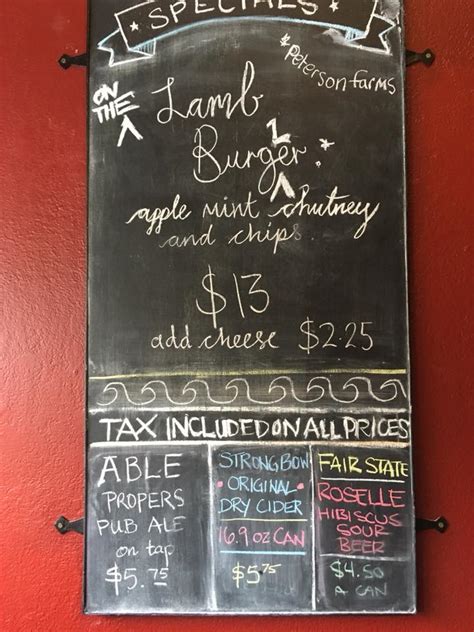 SPECIALS
* Peterson farms
ON THE ^ Lamb
Burger. *
L
^
apple mint chutney
and chips.
$13
add cheese $2.25
TAX INCLUDED ON ALL PRICES
ABLE
PROPERS
PUB ALE
on tap
$5.75
STRONGBOW
• ORIGINAL •
DRY CIDER
16.9 oz CAN
$5.75
FAIR STATE
ROSELLE
HIBISCUS
SOUR
BEER
$4.50
A CAN